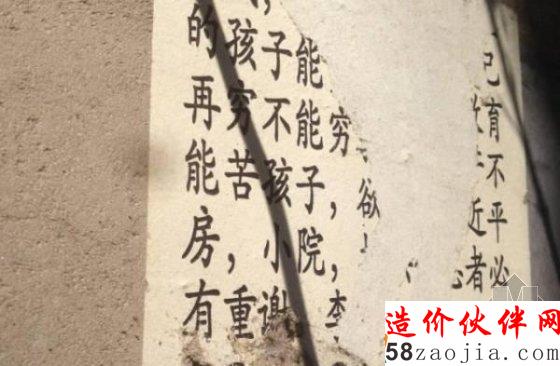 的孩子能
再穷不能穷
能苦孩子，欲
房，小院，
有重谢，李
己
育不
平
近必
者
造价伙伴网
58zaojia.com